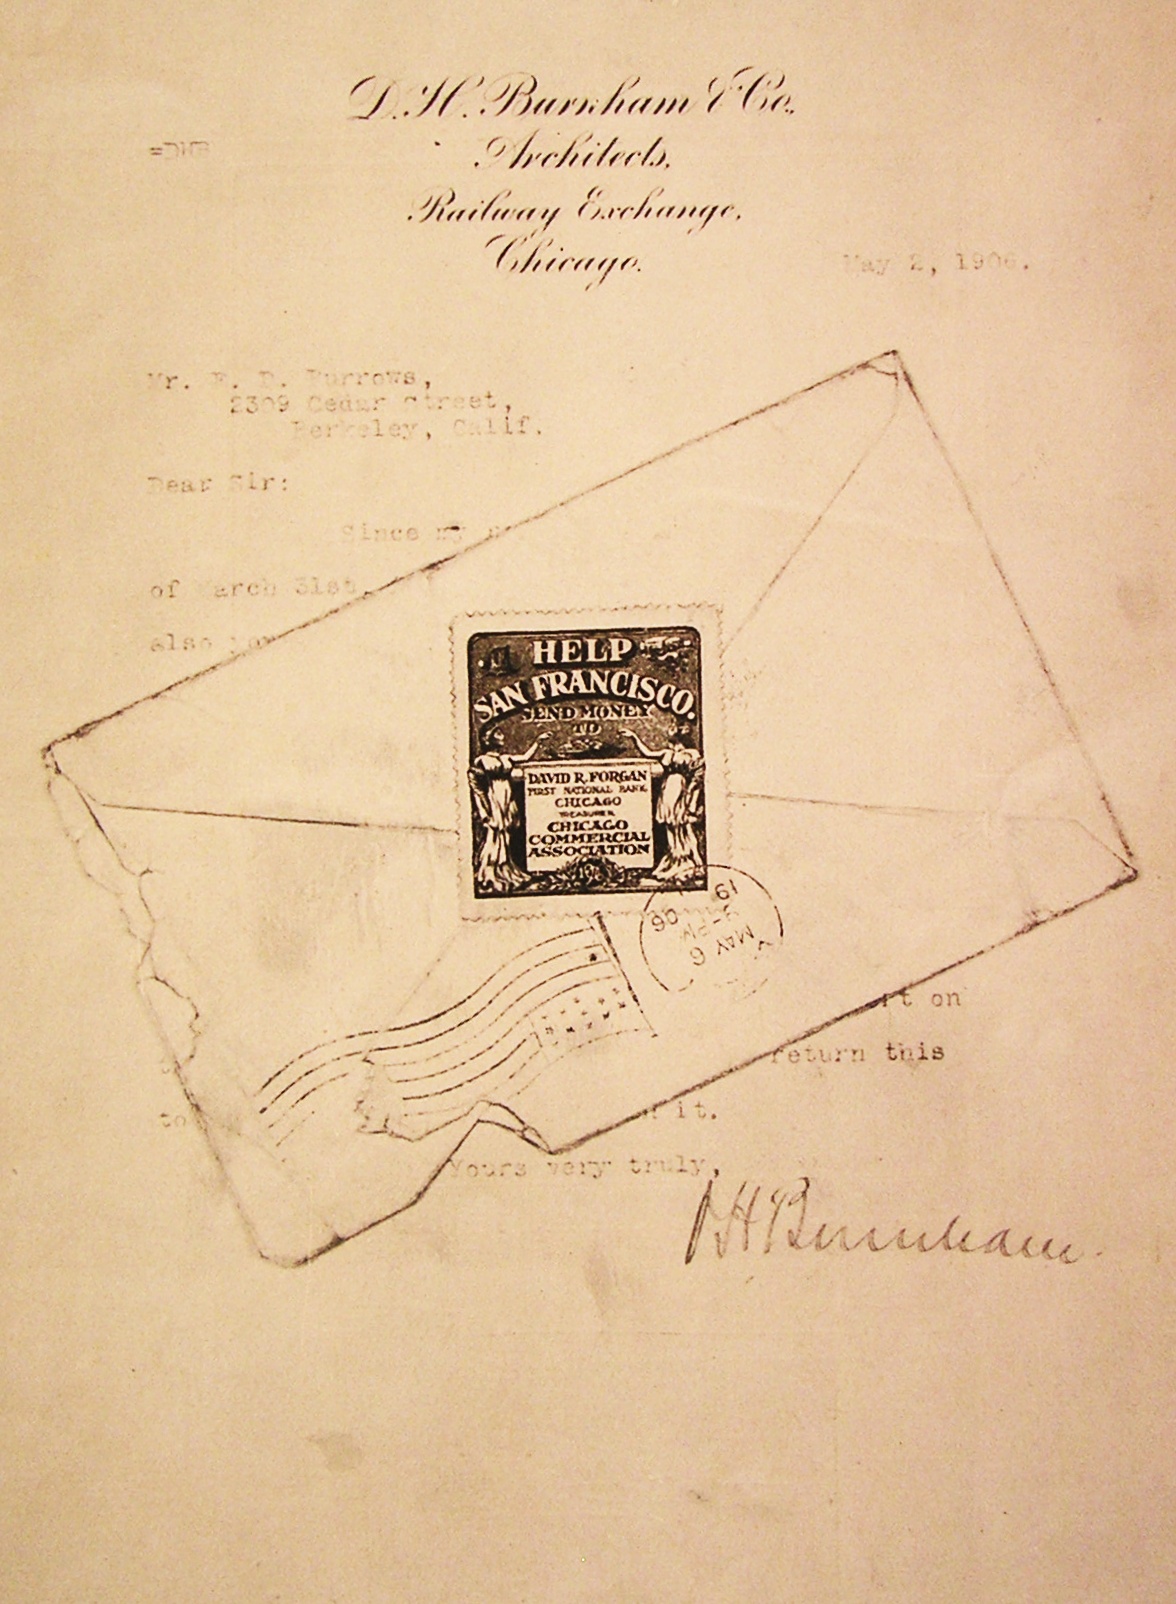 D. H. Burnham & Co.,
Architects,
Railway Exchange,
Chicago.
=DHB
May 2, 1906.
Mr. F. D. Burrows,
2309 Cedar Street,
Berkeley, Calif.
Dear Sir:
Since my
of March 31st,
also you
HELP
SAN FRANCISCO.
SEND MONEY
TO
DAVID R. FORGAN
FIRST NATIONAL BANK
CHICAGO
TREASURER
CHICAGO
COMMERCIAL
ASSOCIATION
MAY 6
-PM
19 06
it on
return this
to of it.
Yours very truly,
D H Burnham.